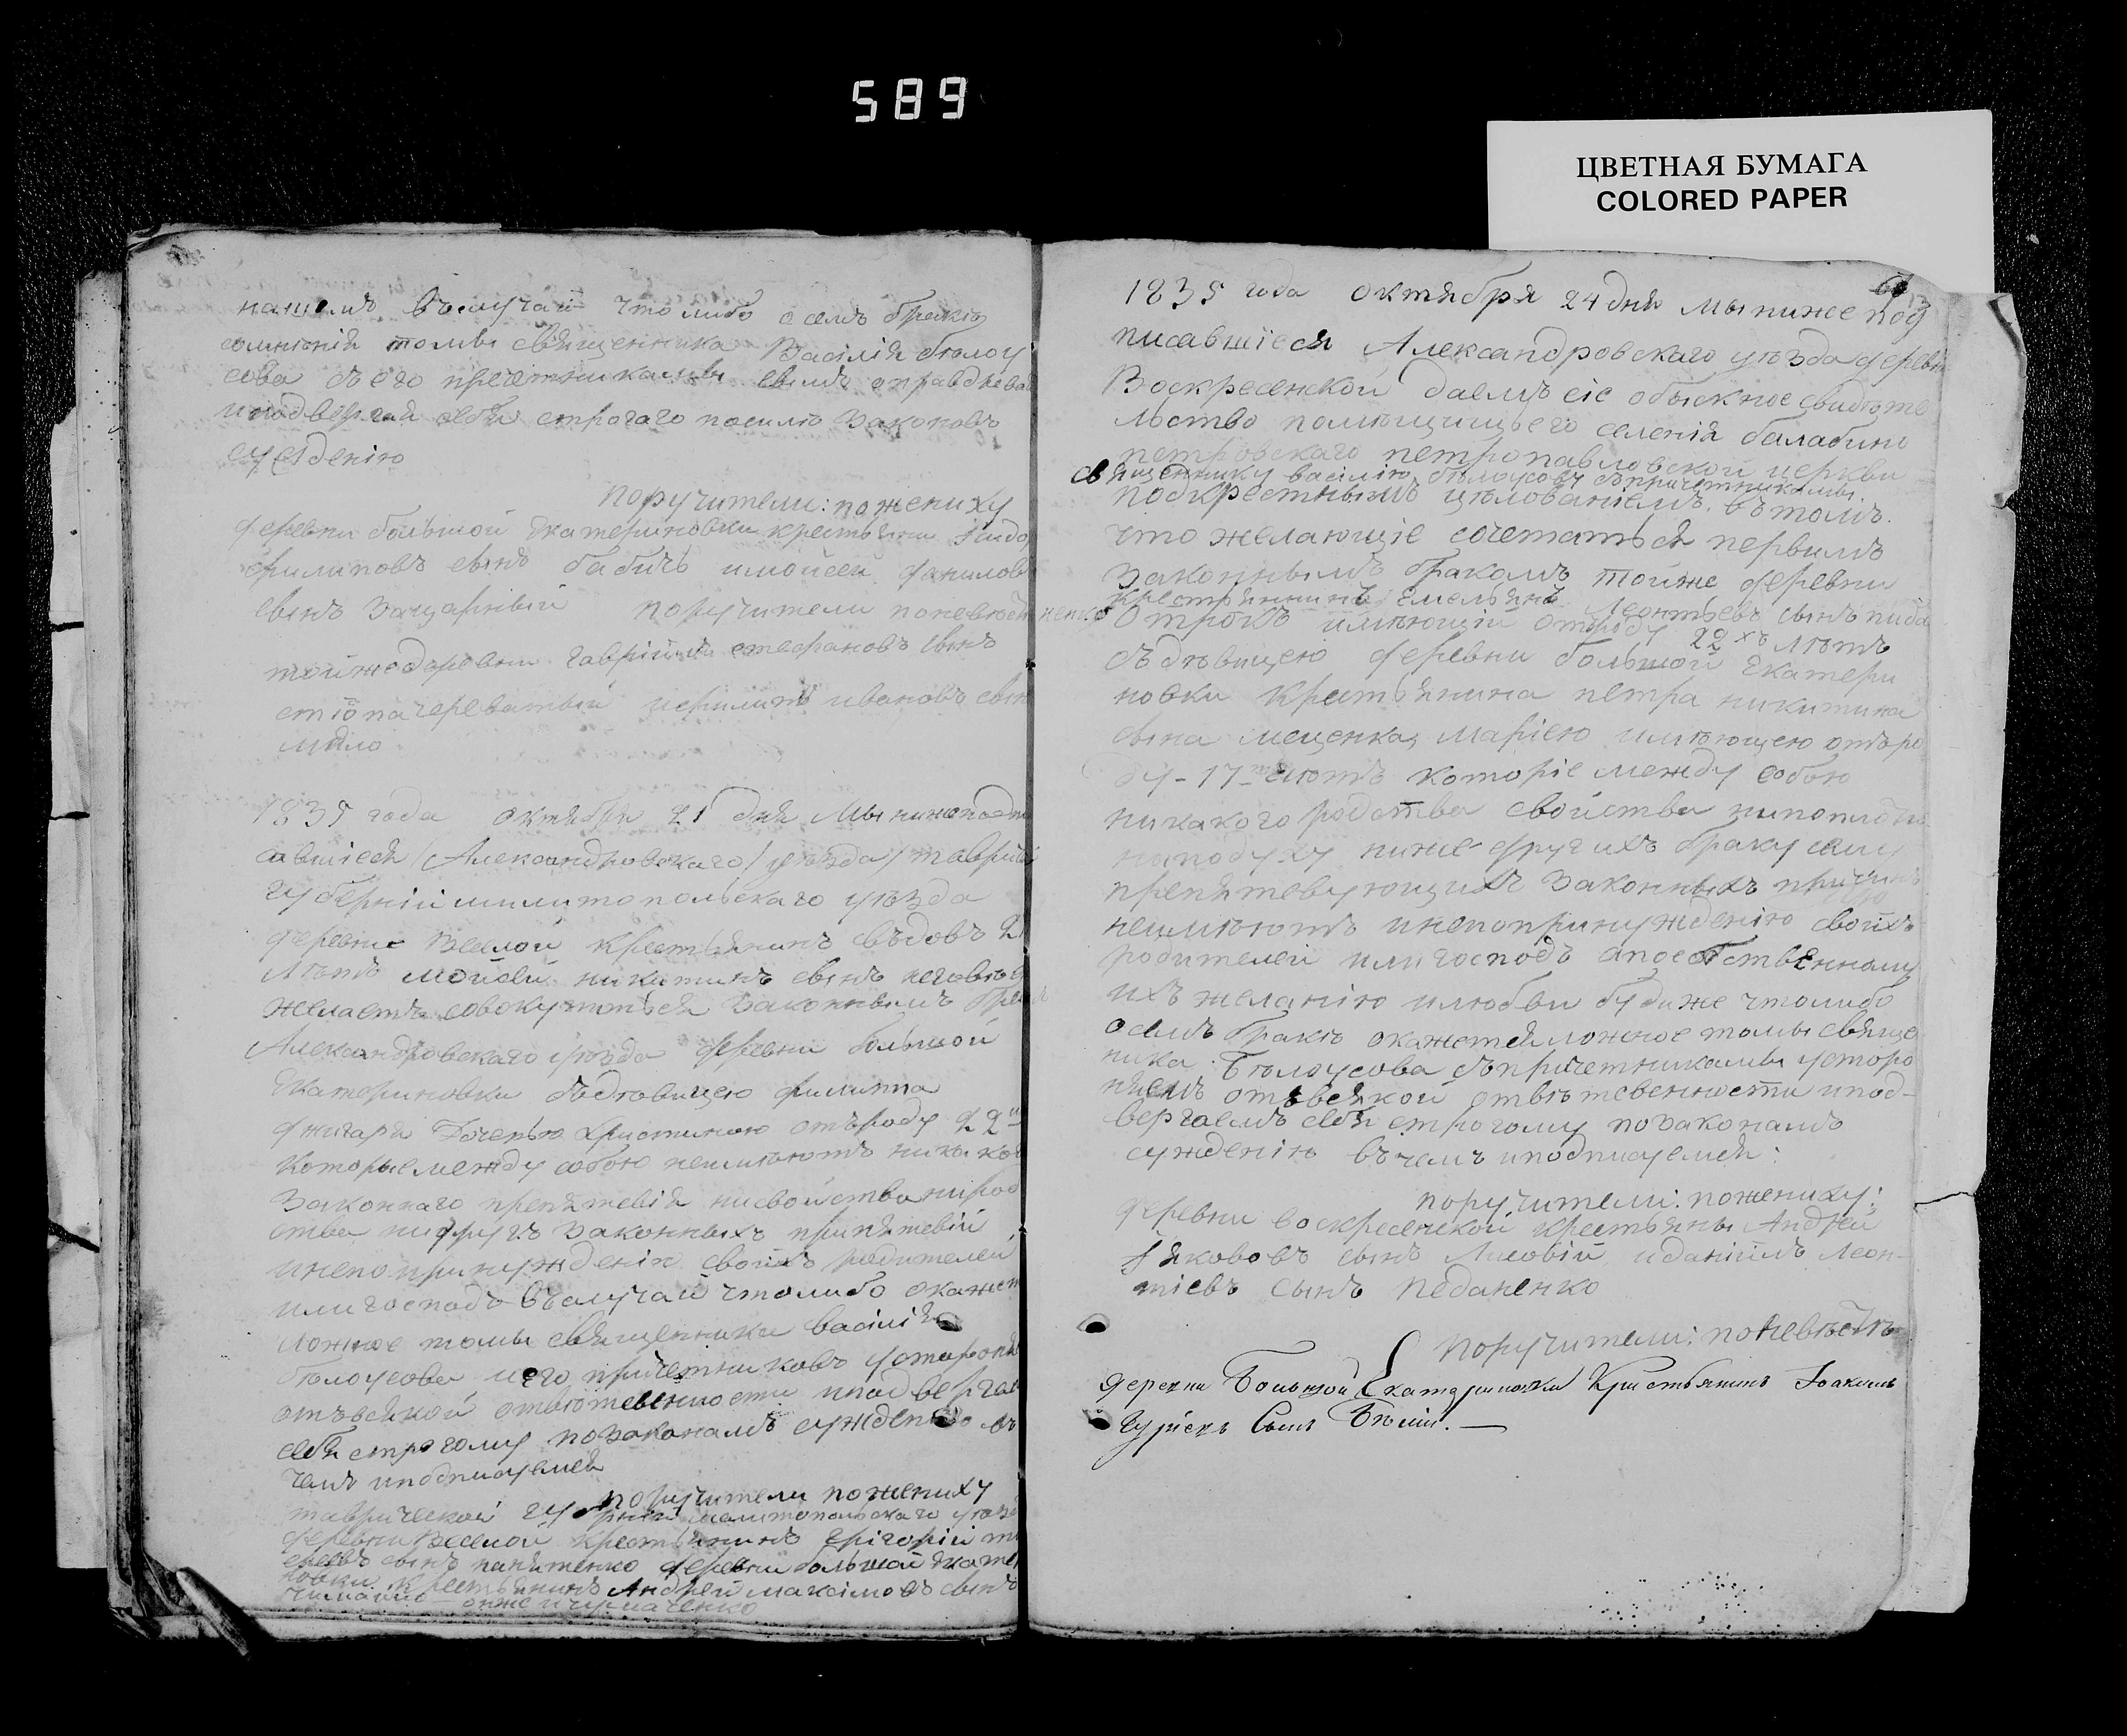 589
ЦВЕТНАЯ БУМАГА
COLORED PAPER
нашемъ вслучаи что либо о семъ бракѣ
сомнѣнія томы священника Васілія бѣлоу
сова съ его причетниками симъ оправдаева
иподвергая себя строгаго посилѣ законовъ
сужденію
поручители: пожениху
деревни большой Екатериновки крестьяни
филиповъ сынъ бабичъ имойсей данилов
сынъ поручители поневѣст
тойжедеревни гавріилъ стефановъ сынъ
ивановъ сын
1835 года октября 21 дня Мы нижеподпи
савшіеся (Александровскаго) уѣзда) тавричес
губерніи милитопольскаго уѣзда
деревни Веселой крестьянинъ вдовъ
лѣтъ мойсей никитинъ сынъ
желаетъ совокупиться законнымъ брак
Александровскаго уѣзда деревни большой
Екатериновки сдѣвицею филиппа
Дочерью Христиною отъроду 22
которые между собою неимѣютъ никако
законнаго препятствія нисвойства нирод
ства нидругъ законныхъ припятствій
инепопринужденію своихъ родителей
или господъ въслучаи чтолибо окажет
ложное томы священника Васілія
бѣлоусова иего причетниковъ устороня
отъвсякой отвѣтственности иподверга
себя строгому позаконамъ сужденію въ
чемъ иподписуемся
поручители пожениху
таврической губерніи мелитопольскаго уѣзд
деревни Веселой крестьянинъ григорій ти
сынъ деревни большой Екате
новки крестьянинъ Андрей максімовъ сынъ
1835 года октября 24 дня мы ниже под
писавшіеся Александровскаго уѣзда дерев
Воскресенской даемъ сіе обыскное свидѣте
льство помѣщицьего селенія балабино
петровскаго петропавловской церкви
священнику васілію бѣлоусову съпричетниками
подкрестнымъ цѣлованіемъ. въ томъ.
что желающіе сочетаться первимъ
законнымъ бракомъ тойже деревни
крестьянинъ Емельянъ Леонтьевъ сынъ педа
ненко отрокъ имѣющій отроду 22хъ лѣтъ
съдѣвицею деревни большой Екатери
новки крестьянина петра никитина
сына меценка, маріею имѣющею отъро
ду - 17 лѣтъ которіе между собою
никакого родства свойства нипоплоти
ниподуху ниже другихъ браку сему
препятствующихъ законныхъ причинъ
неимѣютъ инепопринужденію своихъ
родителей или господъ апособственному
ихъ желанію илюбви будиже чтолибо
осемъ бракѣ окажется ложное томы свяще
ника Бѣлоусова съпричетниками усторо
няемъ отъвсякой отвѣтсвенности ипод-
вергаемъ себя строгому позаконамъ
сужденію въчемъ иподписуемся:
поручители: пожениху:
деревни воскресенской крестьяны Андрей
Якововъ сынъ Лисовій иданіилъ Леон-
тіевъ сынъ педаненко
поручители: поневѣстѣ
деревни Большой Екатериновки Крестьянинъ Іоакимъ
Гурьевъ Сынъ